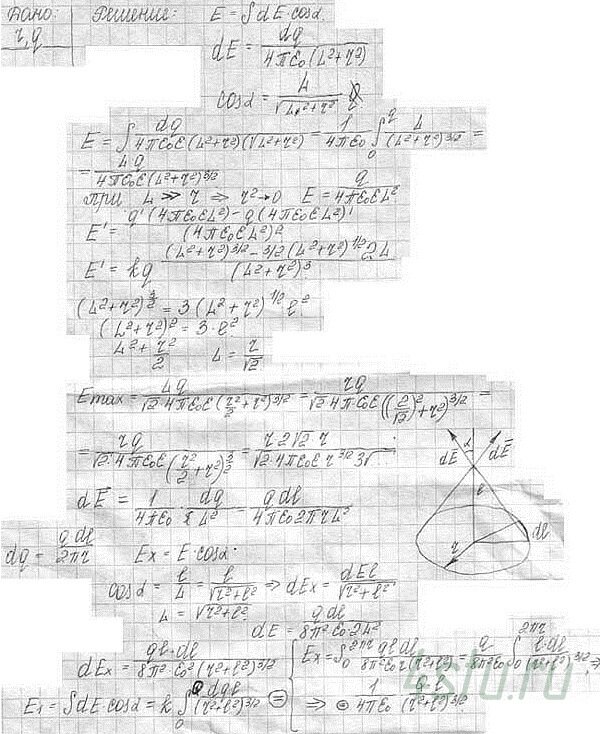 Дано: Решение: E = ∫dE·cosα.
r, q
dE = dq / 4πε₀(L²+r²)
cosα = L / √(L²+r²)
E = ∫ dq / 4πε₀ε(L²+r²)(√(L²+r²)) = 1/4πε₀ ∫₀^q L/(L²+r²)^3/2 =
= Lq / 4πε₀ε(L²+r²)^3/2
при L ≫ r ⇒ r²→0 E = q / 4πε₀εL²
E' = q'(4πε₀εL²) - q(4πε₀εL²)' / (4πε₀εL²)²
E' = kq (L²+r²)^3/2 - 3/2(L²+r²)^1/2 2L / (L²+r²)³
(L²+r²)^3/2 = 3(L²+r²)^1/2 ℓ²
(L²+r²)² = 3·ℓ²
L² + r²/2 L = r/√2
Emax = Lq / √2·4πε₀ε(r²/2+r²)^3/2 = rq / √2·4πε₀ε((2/√2)²+r²)^3/2 =
= rq / √2·4πε₀ε(r²/2+r²)^3/2 = r2√2r / √2·4πε₀εr^3/2 3√
α
dE dE
ℓ
r dl
dE = 1/4πε₀ · dq/εL² = q dl / 4πε₀2πrL²
dq = q dl / 2πr Ex = E·cosα.
cosα = ℓ/L = ℓ/√(r²+ℓ²) ⇒ dEx = dEℓ / √(r²+ℓ²)
L = √(r²+ℓ²)
dE = q dl / 8π²ε₀2L²
dEx = qℓ·dl / 8π²ε₀²(r²+ℓ²)^3/2 Ex = ∫₀^2πr qℓ dl / 8π²ε₀r(r²+ℓ²) = q/8π²ε₀ ∫₀^2πr ℓ·dl / (r²+ℓ²)^3/2 ⇒
E₁ = ∫dE·cosα = k ∫₀^Q dqℓ / (r²+ℓ²)^3/2 = ⇒ = 1/4πε₀ Qℓ / (r²+ℓ²)^3/2
4stu.ru